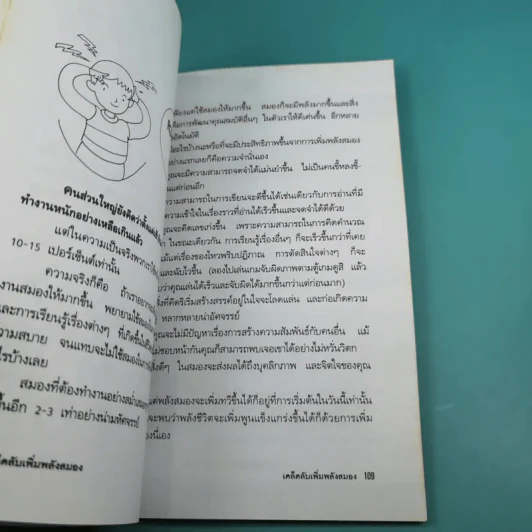 คนส่วนใหญ่ยังคิดว่า
ทำงานหนักอย่างเหลือเกินแล้ว
แต่ในความเป็นจริง
10-15 เปอร์เซ็นต์เท่านั้น
ความจริงก็คือ ถ้าเรา
งานสมองให้มากขึ้น พยายามใช้
และการเรียนรู้เรื่องต่างๆ ที่เกิดขึ้น
ความสบาย จนแทบจะไม่ใช้สมอง
ไรบ้างเลย
สมองที่ต้องทำงานอย่างสม่ำเสมอ
ขึ้นอีก 2-3 เท่าอย่างน่ามหัศจรรย์
เคล็ดลับเพิ่มพลังสมอง
เพียงแต่ใช้สมองให้มากขึ้น สมองก็จะมีพลังมากขึ้นและสิ่ง
คือการพัฒนาคุณสมบัติอื่นๆ ในตัวเราให้ดีเด่นขึ้น อีกหลาย
อัตโนมัติ
อะไรบ้างนะหรือที่จะมีประสิทธิภาพขึ้นจากการเพิ่มพลังสมอง
อย่างแรกเลยก็คือความจำนั่นเอง
คุณจะมีความสามารถจดจำได้แม่นยำขึ้น ไม่เป็นคนขี้หลงขี้-
แต่ก่อนอีก
ความสามารถในการเขียนจะดีขึ้นได้เช่นเดียวกับการอ่านที่มี
ความเข้าใจในเรื่องราวที่อ่านได้เร็วขึ้นและจดจำได้ดีด้วย
คุณจะคิดเลขเก่งขึ้น เพราะความสามารถในการคิดคำนวณ
ในขณะเดียวกัน การเรียนรู้เรื่องอื่นๆ ก็จะเร็วขึ้นกว่าที่เคย
แม้แต่เรื่องของไหวพริบปฏิภาณ การตัดสินใจต่างๆ ก็จะ
และฉับไวขึ้น (ลองไปเล่นเกมจับผิดภาพตามตู้เกมดูสิ แล้ว
พบว่าคุณเล่นได้เร็วและจับผิดได้มากขึ้นกว่าแต่ก่อนมาก)
สิ่งที่คิดริเริ่มสร้างสรรค์อยู่ในใจจะโลดแล่น และก่อเกิดความ
หลากหลายน่าอัศจรรย์
คุณจะไม่มีปัญหาเรื่องการสร้างความสัมพันธ์กับคนอื่น แม้
ไม่ชอบหน้ากันคุณก็สามารถพบเจอเขาได้อย่างไม่หวั่นวิตก
สิ่งดีๆ ในสมองจะส่งผลได้ถึงบุคลิกภาพ และจิตใจของคุณ
แต่พลังสมองจะเพิ่มทวีขึ้นได้ก็อยู่ที่การเริ่มต้นในวันนี้เท่านั้น
จะพบว่าพลังชีวิตจะเพิ่มพูนแข็งแกร่งขึ้นได้ก็ด้วยการเพิ่ม
องนี่เอง
เคล็ดลับเพิ่มพลังสมอง 109